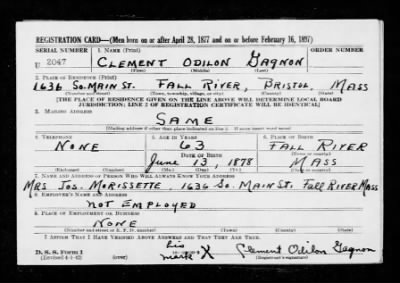 REGISTRATION CARD—(Men born on or after April 28, 1877 and on or before February 16, 1897)
SERIAL NUMBER 1. NAME (Print)
U 2047 CLEMENT ODILON GAGNON
(First) (Middle) (Last)
2. PLACE OF RESIDENCE (Print)
1636 SO. MAIN ST. FALL RIVER, BRISTOL, MASS
(Number and street) (Town, township, village, or city) (County) (State)
[THE PLACE OF RESIDENCE GIVEN ON THE LINE ABOVE WILL DETERMINE LOCAL BOARD
JURISDICTION; LINE 2 OF REGISTRATION CERTIFICATE WILL BE IDENTICAL]
3. MAILING ADDRESS
SAME
(Mailing address if other than place indicated on line 2. If same insert word same)
4. TELEPHONE 5. AGE IN YEARS 6. PLACE OF BIRTH
NONE 63 FALL RIVER
DATE OF BIRTH (Town or county)
June 13, 1878 MASS
7. NAME AND ADDRESS OF PERSON WHO WILL ALWAYS KNOW YOUR ADDRESS
MRS JOS. MORISSETTE, 1636 So. MAIN ST. Fall River Mass
8. EMPLOYER'S NAME AND ADDRESS
NOT EMPLOYED
9. PLACE OF EMPLOYMENT OR BUSINESS
NONE
(Number and street or R. F. D. number) (Town) (County) (State)
I AFFIRM THAT I HAVE VERIFIED ABOVE ANSWERS AND THAT THEY ARE TRUE.
D. S. S. Form 1 his
(Revised 4-1-42) (over) mark X Clement Odilon Gagnon
(Registrant's signature)